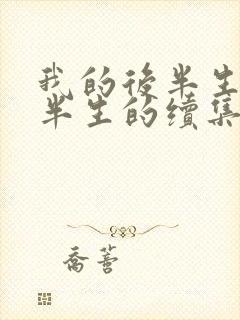 我的後半生
半生的續集
喬薔